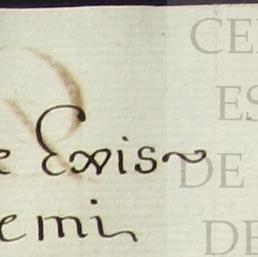 e Exis~
emi
CE
ES
DE
DE